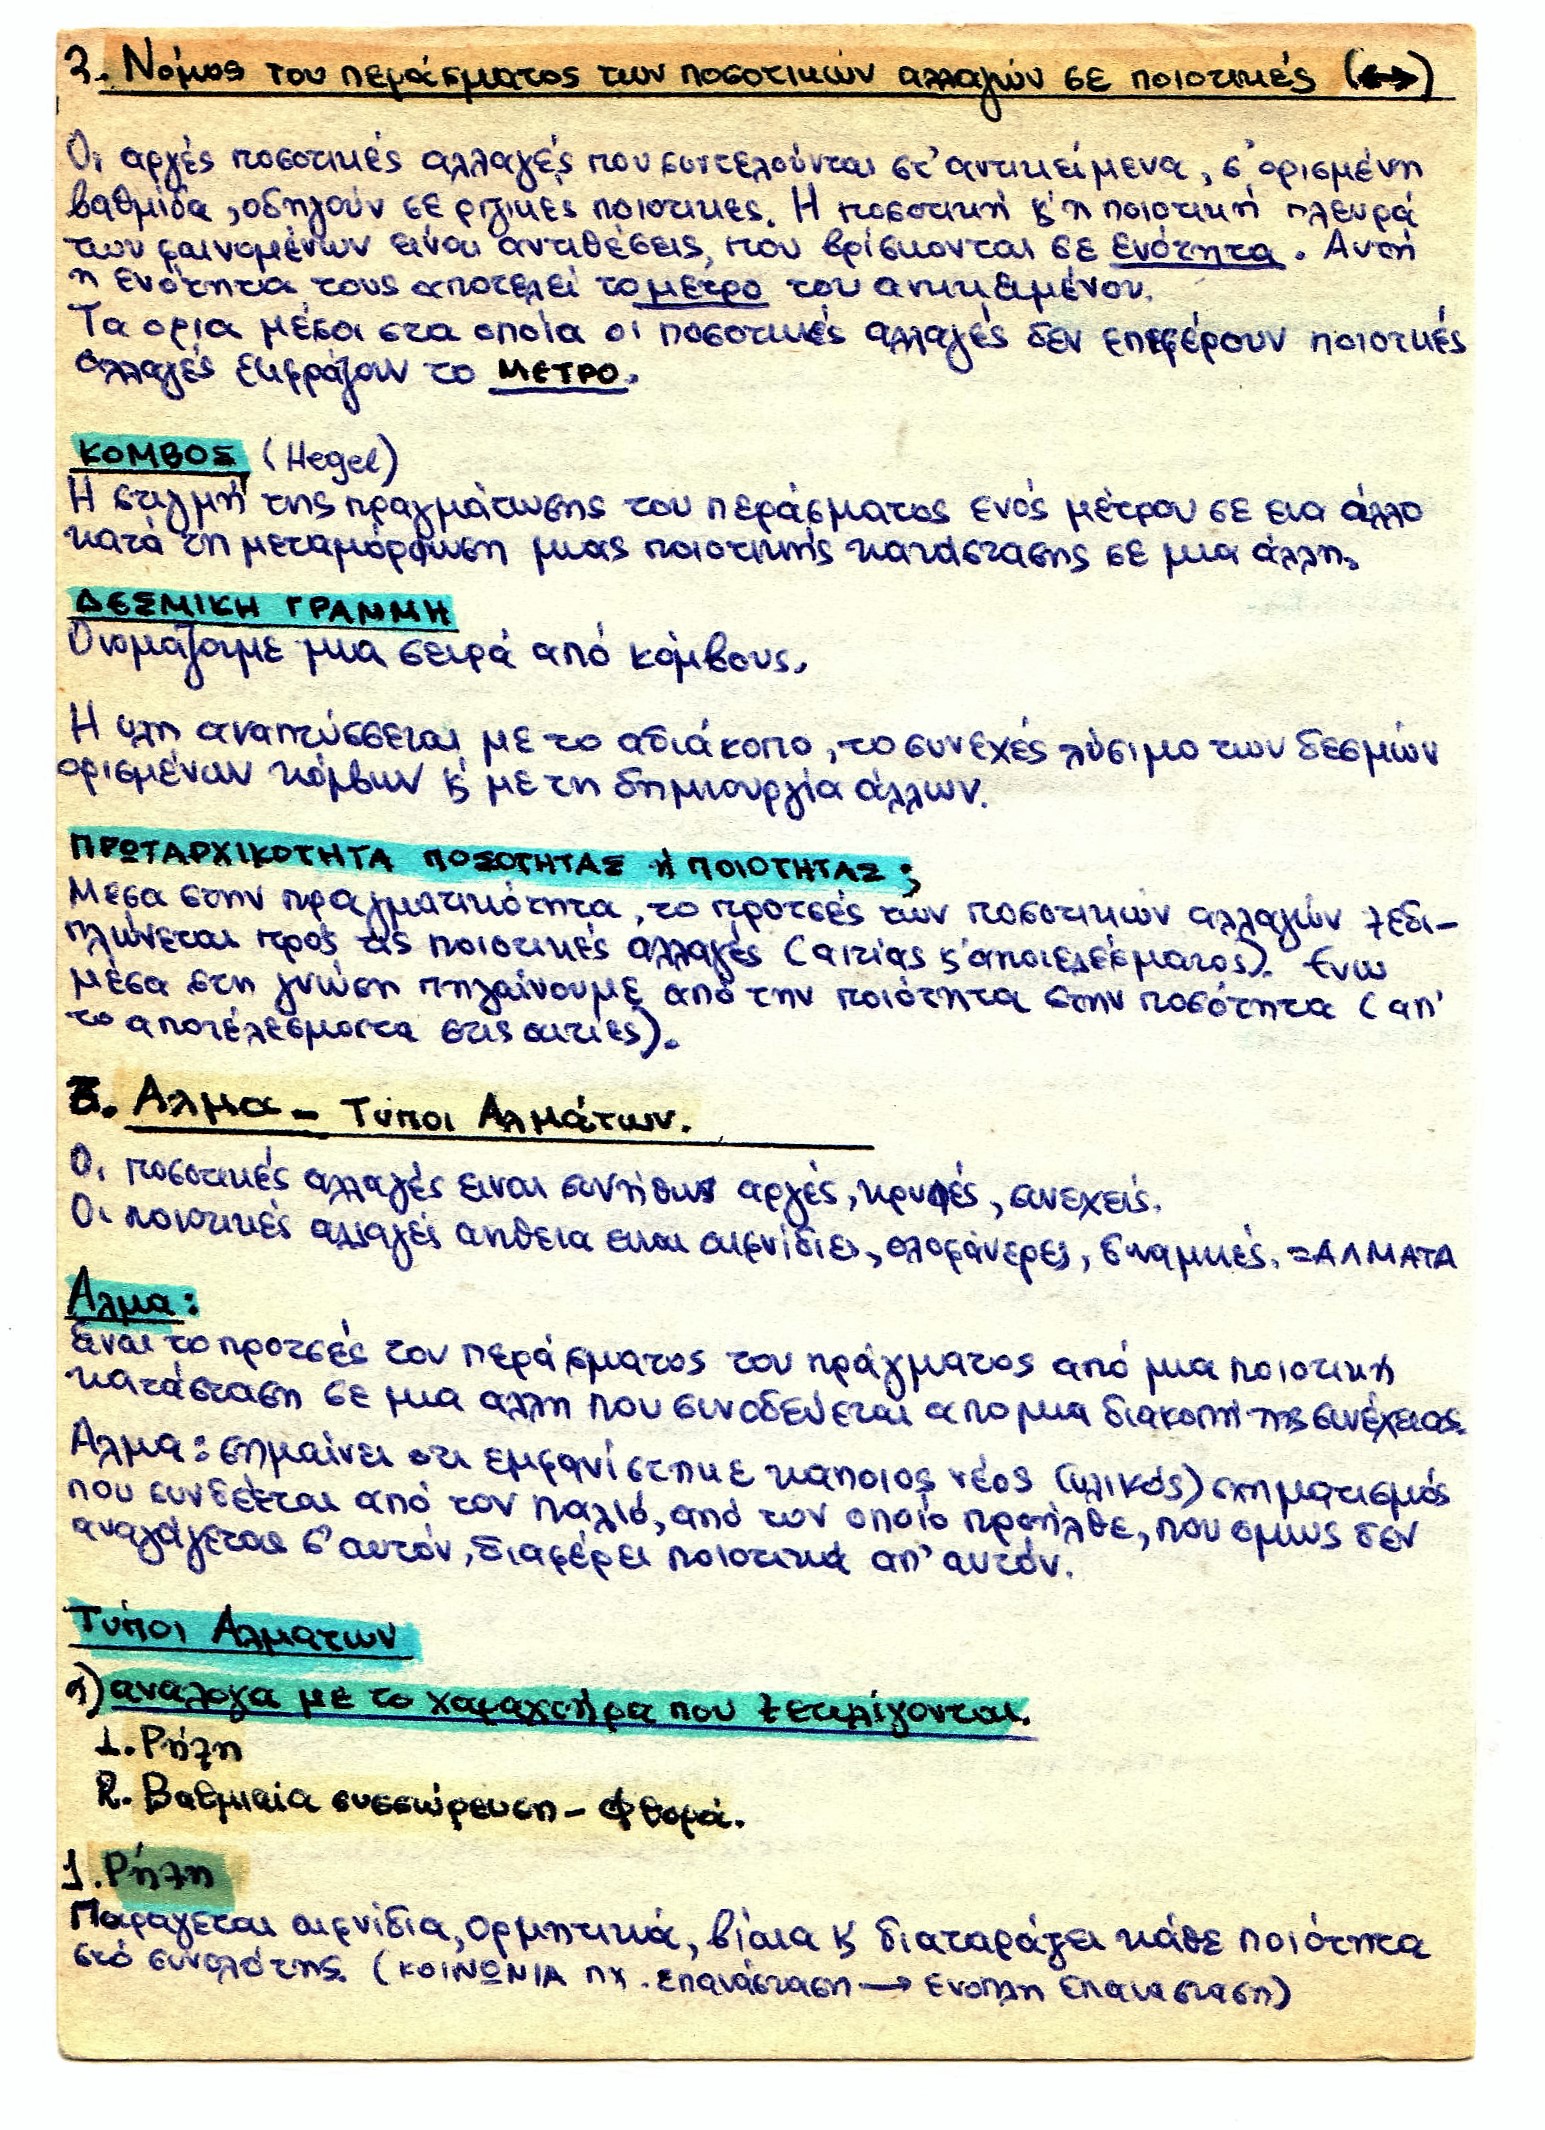 2. Νόμος του περάσματος των ποσοτικών αλλαγών σε ποιοτικές (↔)
Οι αργές ποσοτικές αλλαγές που συντελούνται στ' αντικείμενα, σ' ορισμένη
βαθμίδα, οδηγούν σε ριζικες ποιοτικες. Η ποσοτική κ' η ποιοτική πλευρά
των φαινομένων είναι αντιθέσεις, που βρίσκονται σε ενότητα. Αυτή
η ενότητα τους αποτελεί το μετρο του αντικειμένου.
Τα ορια μέσα στα οποία οι ποσοτικές αλλαγές δεν επιφέρουν ποιοτικές
αλλαγές εκφράζουν το ΜΕΤΡΟ.
ΚΟΜΒΟΣ (Hegel)
Η στιγμή της πραγμάτωσης του περάσματος ενός μέτρου σε ενα άλλο
κατά τη μεταμόρφωση μιας ποιοτικής κατάστασης σε μια άλλη.
ΔΕΣΜΙΚΗ ΓΡΑΜΜΗ
Ονομάζουμε μια σειρά από κόμβους.
Η υλη αναπτύσσεται με το αδιάκοπο, το συνεχές λύσιμο των δεσμών
ορισμένων κόμβων κ' με τη δημιουργία άλλων.
ΠΡΩΤΑΡΧΙΚΟΤΗΤΑ ΠΟΣΟΤΗΤΑΣ ή ΠΟΙΟΤΗΤΑΣ;
Μεσα στην πραγματικότητα, το προτσές των ποσοτικών αλλαγών ξεδι-
πλώνεται προς τις ποιοτικές αλλαγές (αιτίας κ' αποτελέσματος). Ενω
μέσα στη γνώση πηγαίνουμε από την ποιότητα στην ποσότητα (απ'
το αποτέλεσμα στις αιτιες).
3. Αλμα - Τύποι Αλμάτων.
Οι ποσοτικές αλλαγές ειναι συνήθως αργές, κρυφές, συνεχείς.
Οι ποιοτικές αλλαγές αντίθετα ειναι αιφνίδιες, ολοφάνερες, δυναμικές. = ΑΛΜΑΤΑ
Αλμα:
Ειναι το προτσές του περάσματος του πράγματος από μια ποιοτική
κατάσταση σε μια αλλη που συνοδεύεται απο μια διακοπή της συνέχειας.
Αλμα: σημαίνει οτι εμφανίστηκε καποιος νέος (υλικός) σχηματισμός
που συνδέεται από τον παλιό, από τον οποίο προήλθε, που ομως δεν
αναγάγεται σ' αυτόν, διαφέρει ποιοτικά απ' αυτόν.
Τύποι Αλματων
α) αναλογα με το χαρακτήρα που ξετυλίγονται.
1. Ρήξη
2. Βαθμιαία συσσώρευση - Φθορά.
1. Ρήξη
Παράγεται αιφνίδια, ορμητικά, βίαια κ' διαταράζει κάθε ποιότητα
στό συνολό της. (ΚΟΙΝΩΝΙΑ πχ. επανάσταση → ενοπλη επανασταση)